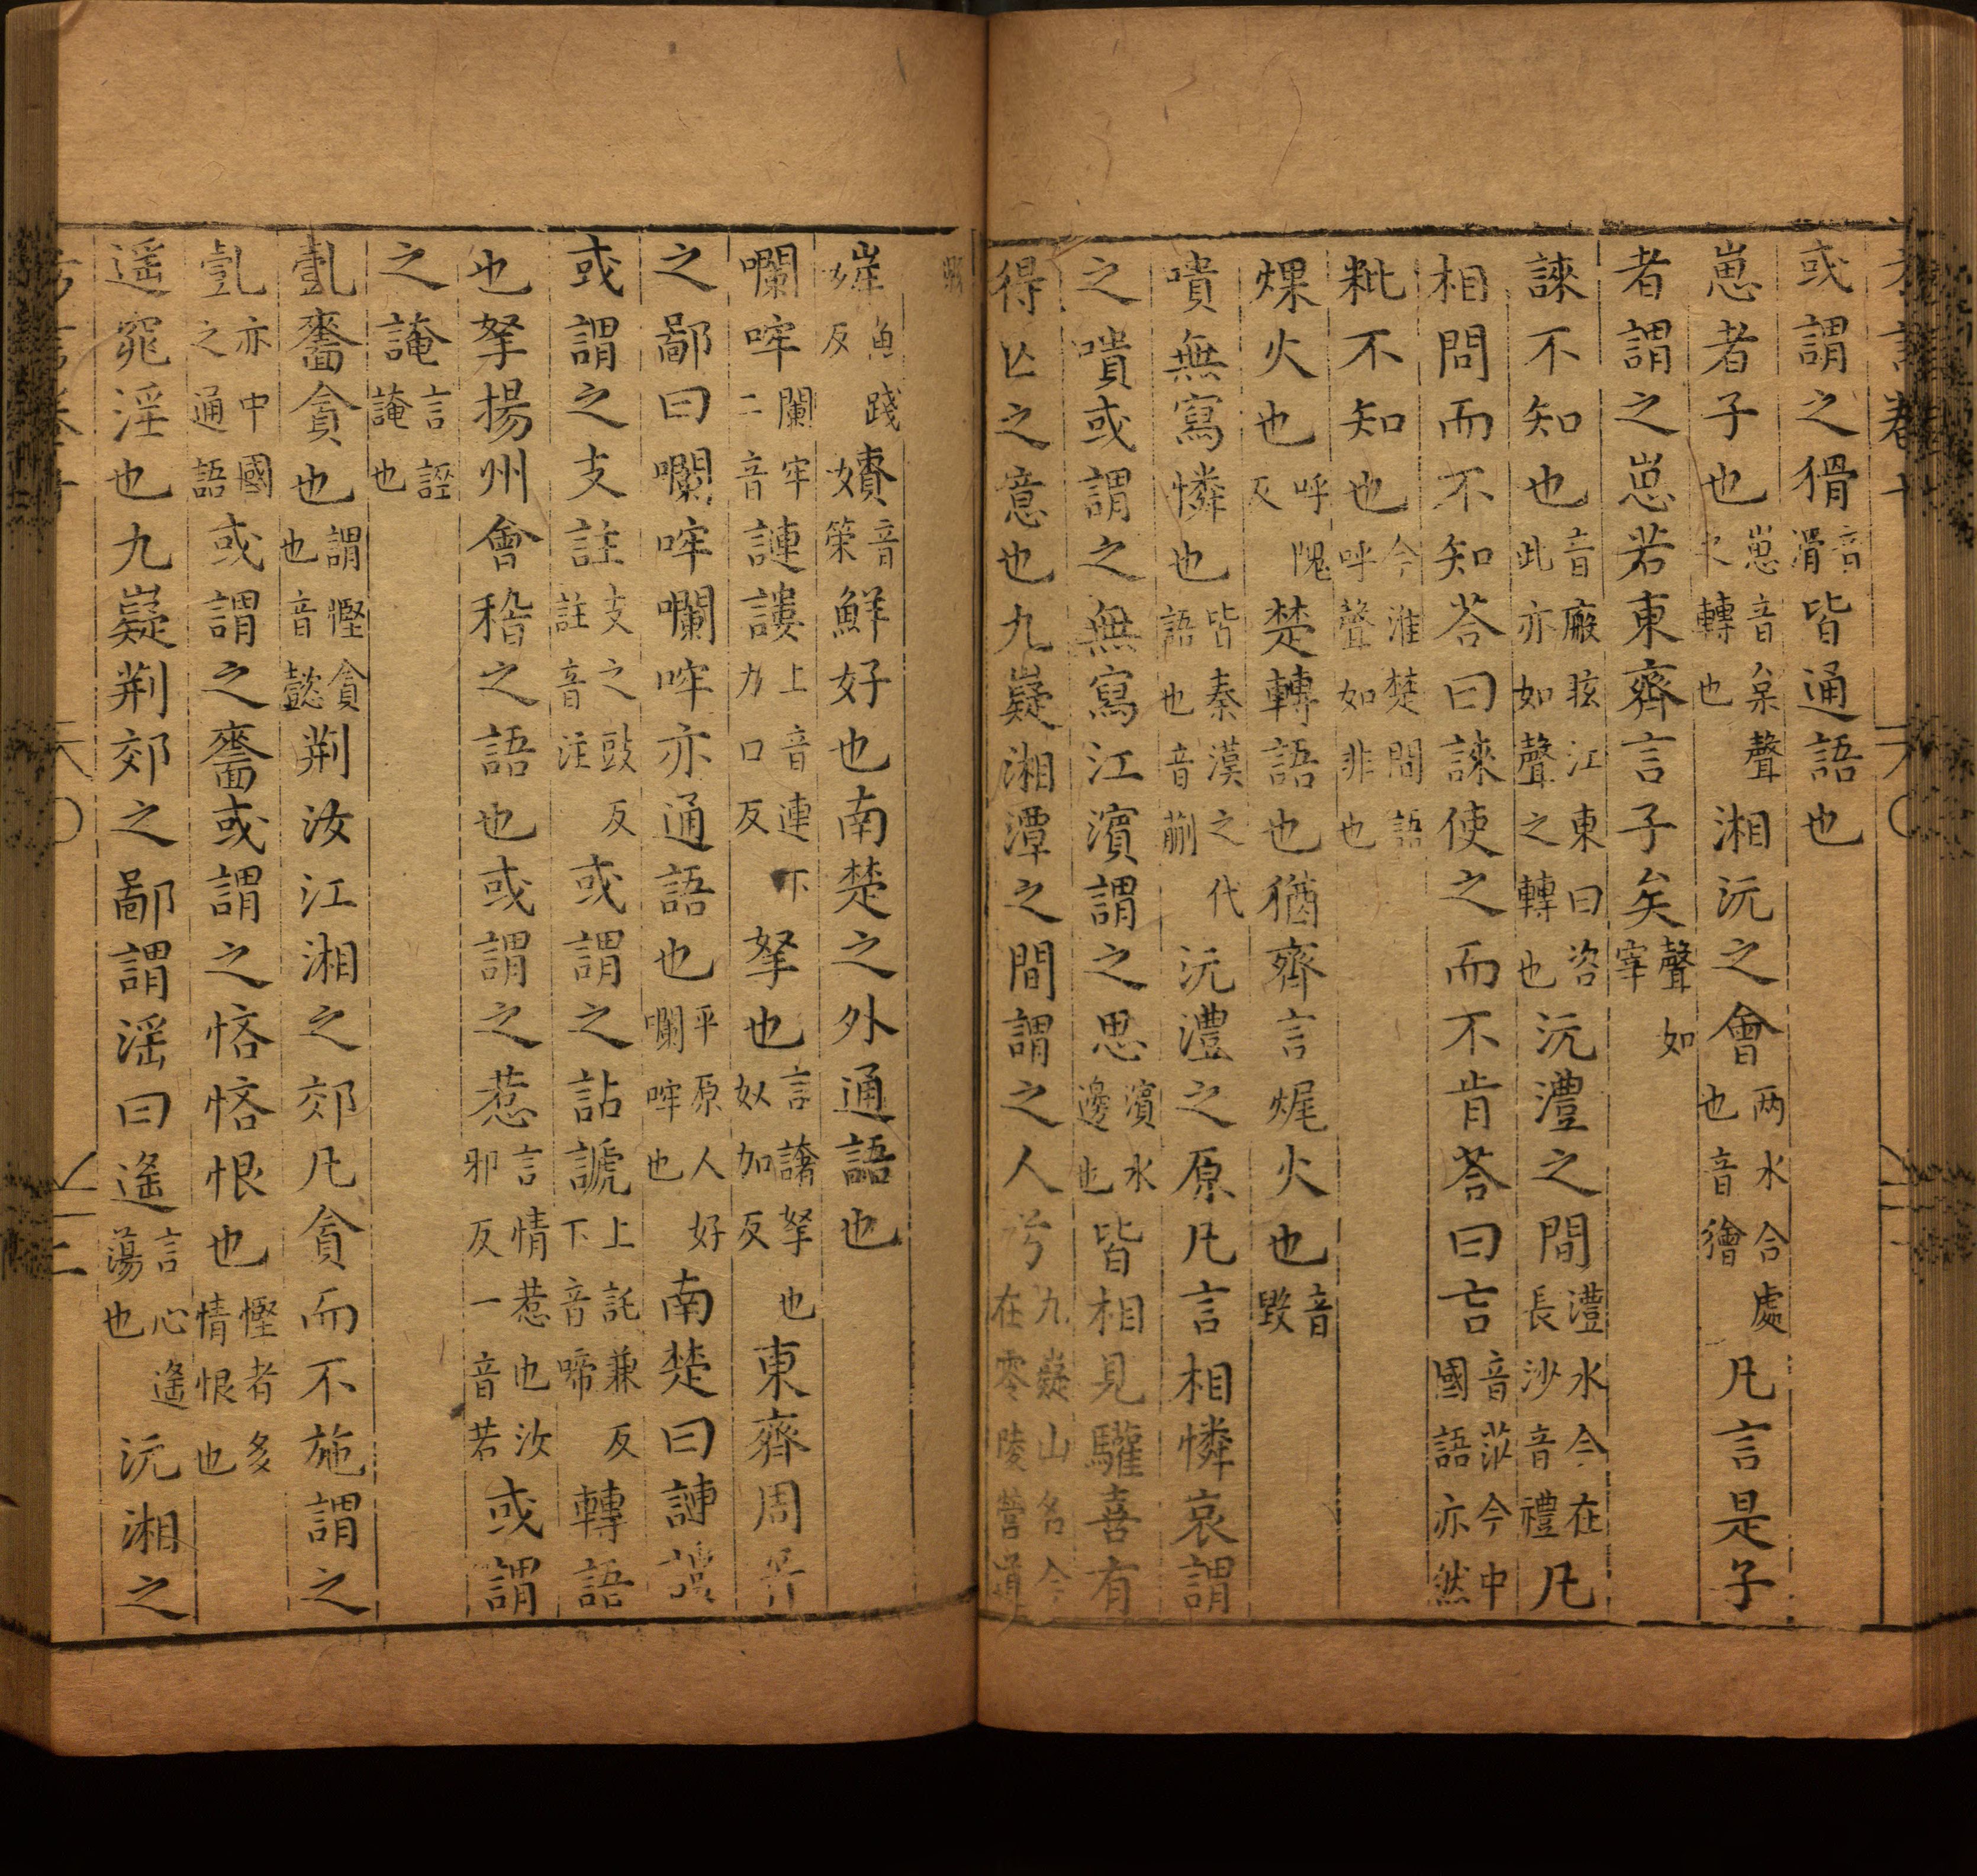 或謂之猾音滑皆通語也
崽者子也崽音枲聲之轉也湘沅之會两水合處也音獪凡言是子
者謂之崽若東齊言子矣聲如宰
誺不知也音癡眩江東曰咨此亦如聲之轉也沅澧之間澧水今在長沙音禮凡
相問而不知荅曰誺使之而不肯荅曰吂音茫今中國語亦然
粃不知也今淮楚間語呼聲如非也
煤火也呼隗反楚轉語也猶齊言㷄火也音毀
嘳無寫憐也皆秦漢之代語也音蒯沅澧之原凡言相憐哀謂
之嘳或謂之無寫江濱謂之思濱水邊也皆相見驩喜有
得亾之意也九嶷湘潭之間謂之人兮九嶷山名今在零陵營道
㜠魚踐反嫧音策鮮好也南楚之外通語也
㘓哰闌牢二音謰謱上音連下力口反拏也言譇拏也奴加反東齊周晉
之鄙曰㘓哰㘓哰亦通語也平原人好㘓哰也南楚曰謰謱
或謂之支註支之豉反註音注或謂之詀謕上託兼反下音啼轉語
也拏揚州會稽之語也或謂之惹言情惹也汝邪反一音若或謂
之䛳言誣䛳也
亄嗇貪也謂慳貪也音懿荆汝江湘之郊凡貪而不施謂之
亄亦中國之通語或謂之嗇或謂之悋悋恨也慳者多情恨也
遥窕淫也九嶷荆郊之鄙謂淫曰遥言心遥蕩也沅湘之